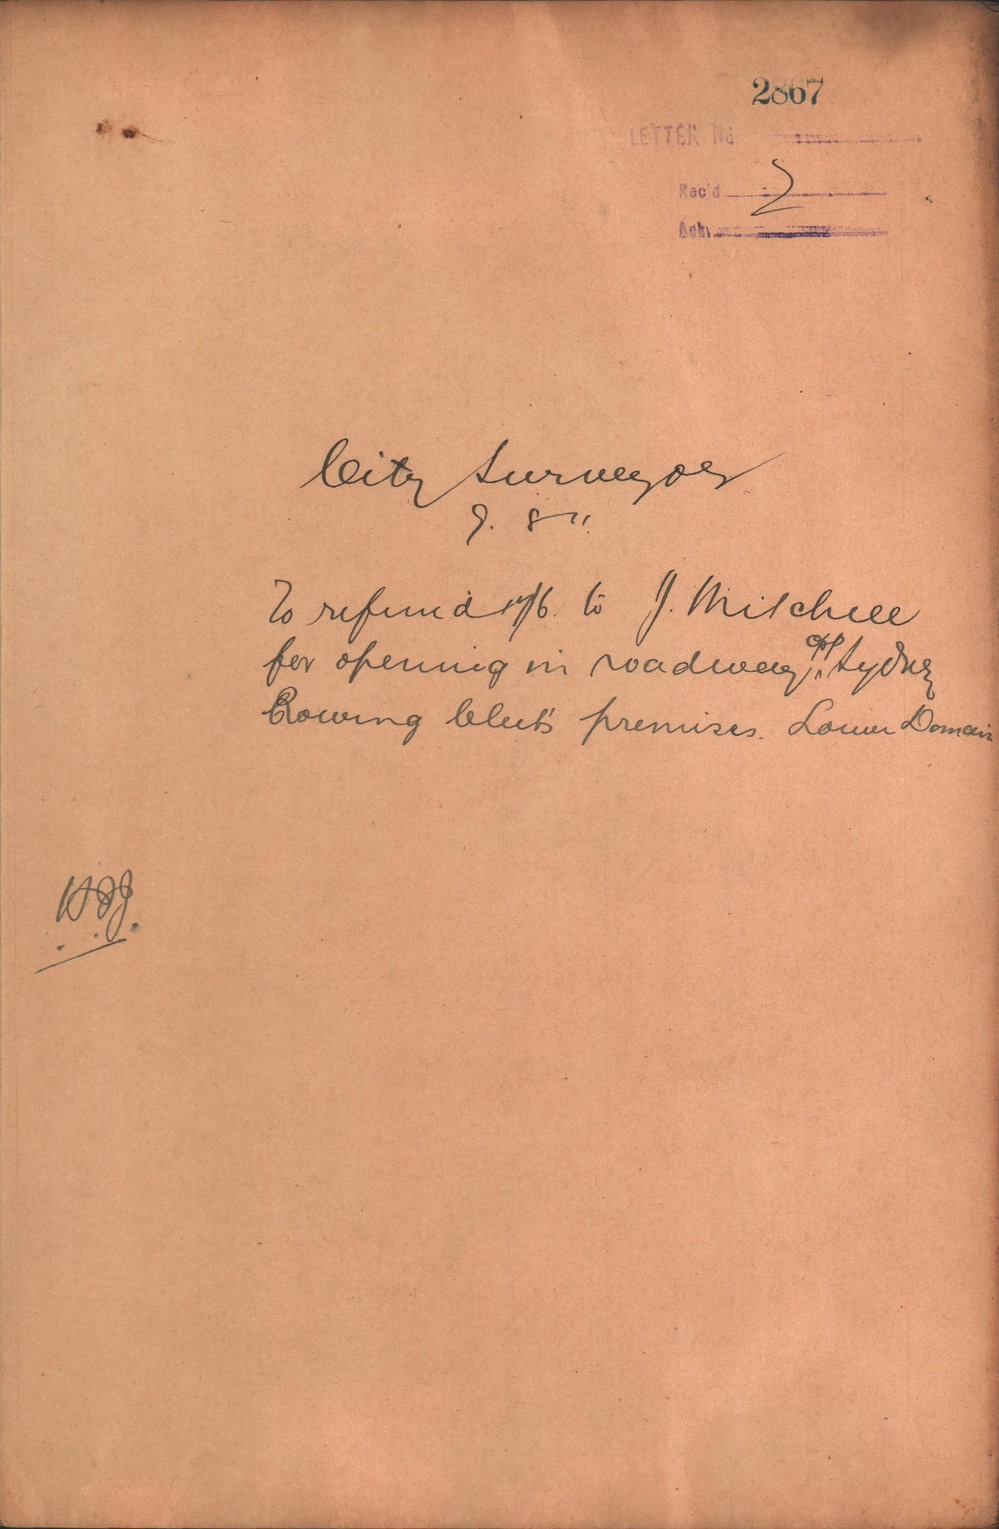 2867
LETTER No.
Rec'd 2
Ack.
City Surveyor
9. 8
To refund 17/6. to J. Mitchell
for opening in roadway opp Sydney
Rowing Club's premises. Lower Domain